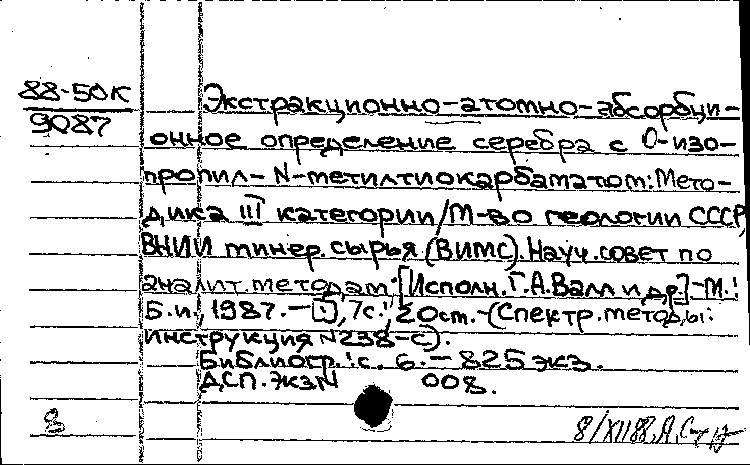 88-50К
9087
Экстракционно-атомно-абсорбци-
онное определение серебра с О-изо-
пропил-N-метилтиокарбаматом: Мето-
дика III категории/М-во геологии СССР,
ВНИИ минер. сырья (ВИМС). Науч. совет по
аналит. методам; [Исполн. Г.А.Валл и др.]-М.:
Б.и., 1987.-[1], 7с.; 20см.-(Спектр. методы:
инструкция N238-С).
Библиогр.: с. 6.-825 экз.
ДСП. экз N 008.
8
8/XII88.